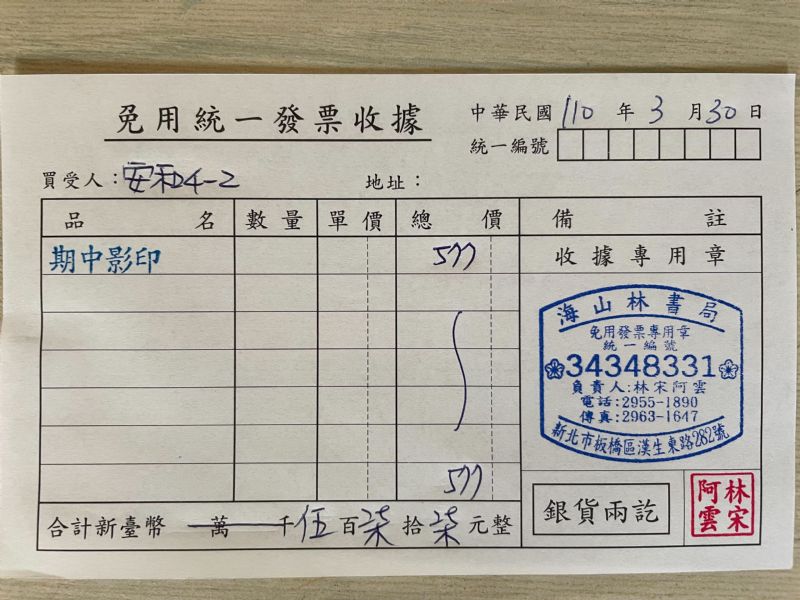 免用統一發票收據
中華民國110年3月30日
統一編號
買受人：安和4-2
地址：
品名 數量 單價 總價 備註
期中影印 577 收據專用章
海山林書局
免用發票專用章
統一編號
34348331
負責人:林宋阿雲
電話:2955-1890
傳真:2963-1647
新北市板橋區漢生東路282號
577
合計新臺幣 萬 千伍百柒拾柒元整
銀貨兩訖
林宋阿雲